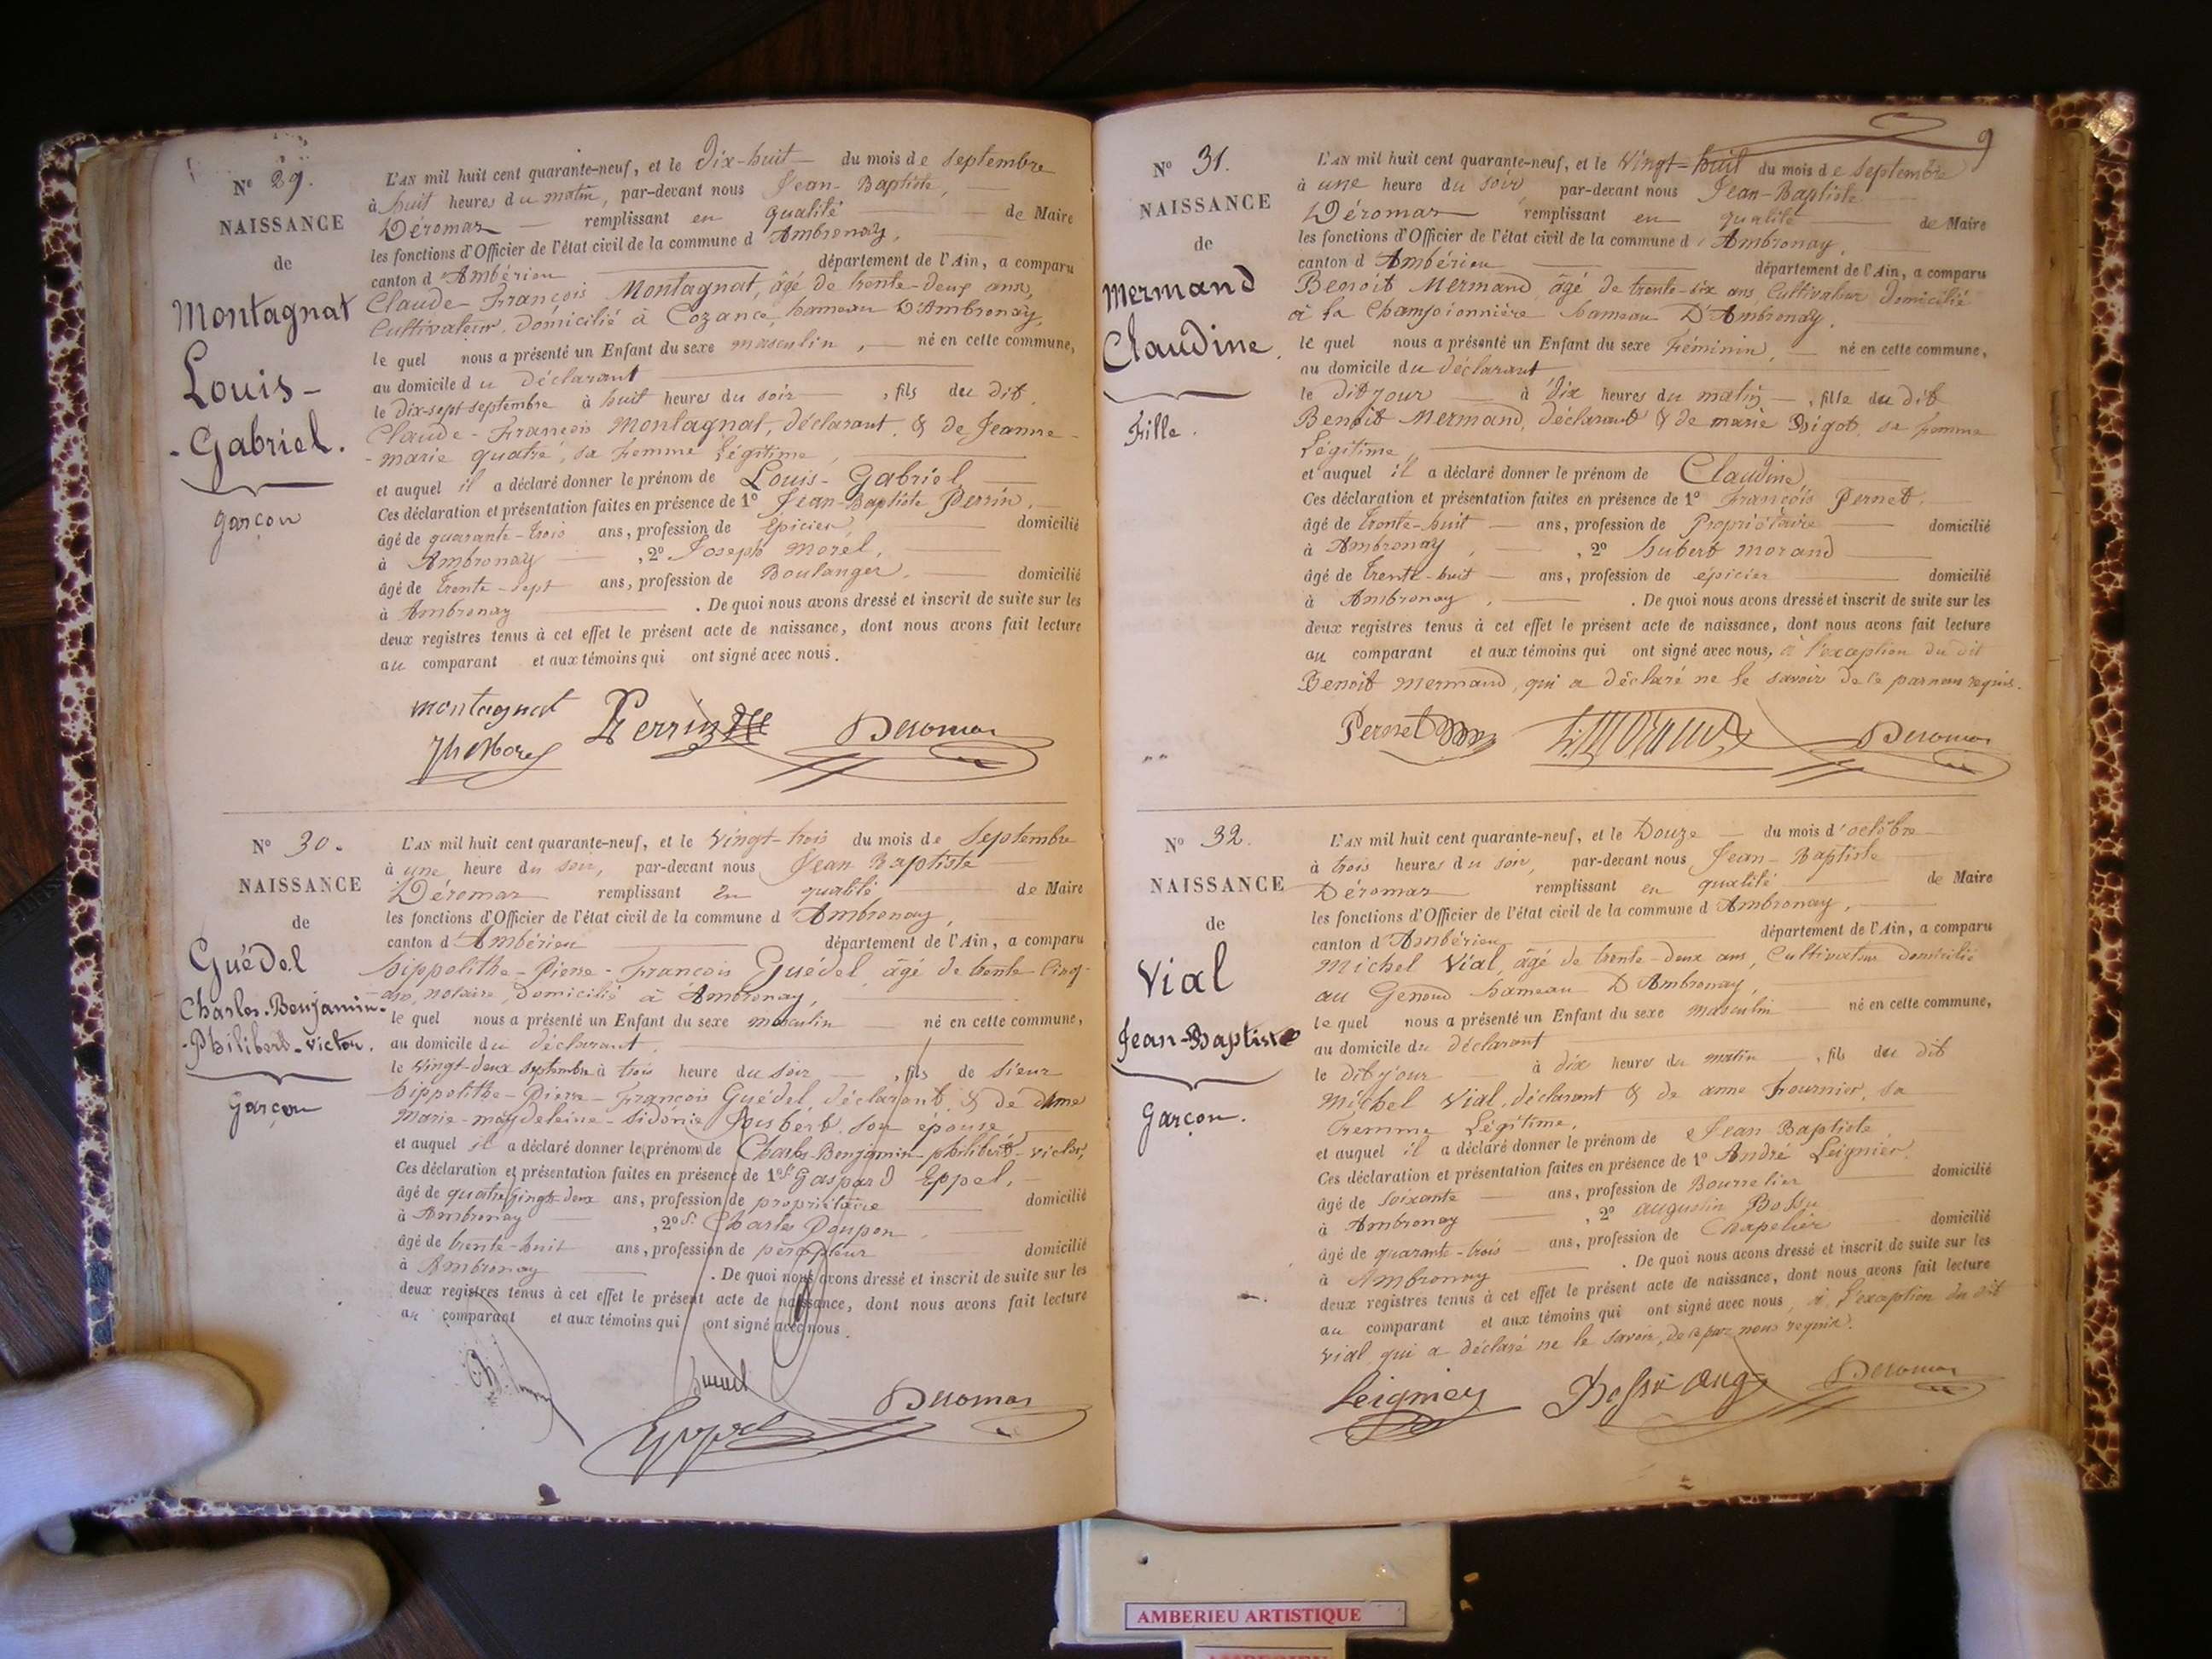 Nº 29.
NAISSANCE
de
Montagnat
Louis-
-Gabriel.
garçon
L'AN mil huit cent quarante-neuf, et le Dix-huit du mois de septembre
à huit heures du matin, par-devant nous Jean-Baptiste,
Déromas remplissant en qualité de Maire
les fonctions d'Officier de l'état civil de la commune d'Ambronay,
canton d'Ambérieu département de l'Ain, a comparu
Claude-François Montagnat, âgé de trente-deux ans,
Cultivateur, domicilié à Cozance, hameau D'Ambronay,
le quel nous a présenté un Enfant du sexe masculin, né en cette commune,
au domicile du Déclarant
le Dix-sept septembre à huit heures du soir, fils du dit
Claude-François Montagnat, déclarant, & de Jeanne-
-marie quatre, sa Femme légitime,
et auquel il a déclaré donner le prénom de Louis-Gabriel,
Ces déclaration et présentation faites en présence de 1º Jean-Baptiste Perrin,
âgé de quarante-trois ans, profession de Epicier domicilié
à Ambronay, 2º Joseph Morel,
âgé de trente-sept ans, profession de Boulanger, domicilié
à Ambronay. De quoi nous avons dressé et inscrit de suite sur les
deux registres tenus à cet effet le présent acte de naissance, dont nous avons fait lecture
au comparant et aux témoins qui ont signé avec nous.
montagnat Perrin Deromas
Nº 30.
NAISSANCE
de
Guédel
Charles-Benjamin-
-Philibert-Victor.
garçon
L'AN mil huit cent quarante-neuf, et le Vingt-trois du mois de Septembre
à une heure du soir, par-devant nous Jean Baptiste
Déromas remplissant en qualité de Maire
les fonctions d'Officier de l'état civil de la commune d'Ambronay,
canton d'Ambérieu département de l'Ain, a comparu
hippolithe-Pierre-François Guédel, âgé de trente-cinq-
ans, notaire, domicilié à Ambronay,
le quel nous a présenté un Enfant du sexe masculin né en cette commune,
au domicile du déclarant,
le Vingt-deux septembre à trois heure du soir, fils de sieur
hippolithe-Pierre-François Guédel, déclarant, & de dame
Marie-magdeleine-Sidonie Joubert, son épouse
et auquel il a déclaré donner le prénom de Charles-Benjamin-philibert-victor,
Ces déclaration et présentation faites en présence de 1º Sr Gaspard Eppel,
âgé de quatre vingt-deux ans, profession de propriétaire domicilié
à Ambronay, 2º Sr Charles
âgé de trente-huit ans, profession de percepteur domicilié
à Ambronay. De quoi nous avons dressé et inscrit de suite sur les
deux registres tenus à cet effet le présent acte de naissance, dont nous avons fait lecture
au comparant et aux témoins qui ont signé avec nous.
Eppel Deromas
9
Nº 31.
NAISSANCE
de
Mermand
Claudine,
Fille.
L'AN mil huit cent quarante-neuf, et le Vingt-huit du mois de septembre
à une heure du soir par-devant nous Jean-Baptiste
Déromas remplissant en qualité de Maire
les fonctions d'Officier de l'état civil de la commune d'Ambronay,
canton d'Ambérieu département de l'Ain, a comparu
Benoit Mermand, âgé de trente-six ans, Cultivateur domicilié
à la Championnière hameau D'Ambronay.
le quel nous a présenté un Enfant du sexe Féminin, né en cette commune,
au domicile du déclarant
le dit jour à Dix heures du matin, fille du dit
Benoit Mermand, déclarant & de marie Bigot, sa femme
légitime,
et auquel il a déclaré donner le prénom de Claudine,
Ces déclaration et présentation faites en présence de 1º François Pernet,
âgé de trente-huit ans, profession de Propriétaire domicilié
à Ambronay, 2º hubert morand
âgé de trente-huit ans, profession de épicier domicilié
à Ambronay. De quoi nous avons dressé et inscrit de suite sur les
deux registres tenus à cet effet le présent acte de naissance, dont nous avons fait lecture
au comparant et aux témoins qui ont signé avec nous, à l'exception du dit
Benoit Mermand, qui a déclaré ne le savoir de ce par nous requis.
Pernet H Morand Deromas
Nº 32.
NAISSANCE
de
Vial
Jean-Baptiste
garçon.
L'AN mil huit cent quarante-neuf, et le Douze du mois d'octobre
à trois heures du soir, par-devant nous Jean-Baptiste
Déromas remplissant en qualité de Maire
les fonctions d'Officier de l'état civil de la commune d'Ambronay,
canton d'Ambérieu département de l'Ain, a comparu
Michel Vial, âgé de trente-deux ans, Cultivateur domicilié
au Genoud hameau D'Ambronay,
le quel nous a présenté un Enfant du sexe masculin né en cette commune,
au domicile du déclarant
le dit jour à dix heures du matin, fils du dit
Michel Vial, déclarant & de anne Fournier, sa
Femme légitime.
et auquel il a déclaré donner le prénom de Jean Baptiste
Ces déclaration et présentation faites en présence de 1º André Leignier.
âgé de soixante ans, profession de Bourrelier domicilié
à Ambronay, 2º augustin Bossu
âgé de quarante-trois ans, profession de Chapelier domicilié
à Ambronay. De quoi nous avons dressé et inscrit de suite sur les
deux registres tenus à cet effet le présent acte de naissance, dont nous avons fait lecture
au comparant et aux témoins qui ont signé avec nous, à l'exception du dit
vial, qui a déclaré ne le savoir, de ce par nous requis.
Leignier Bossu aug Deromas
AMBERIEU ARTISTIQUE